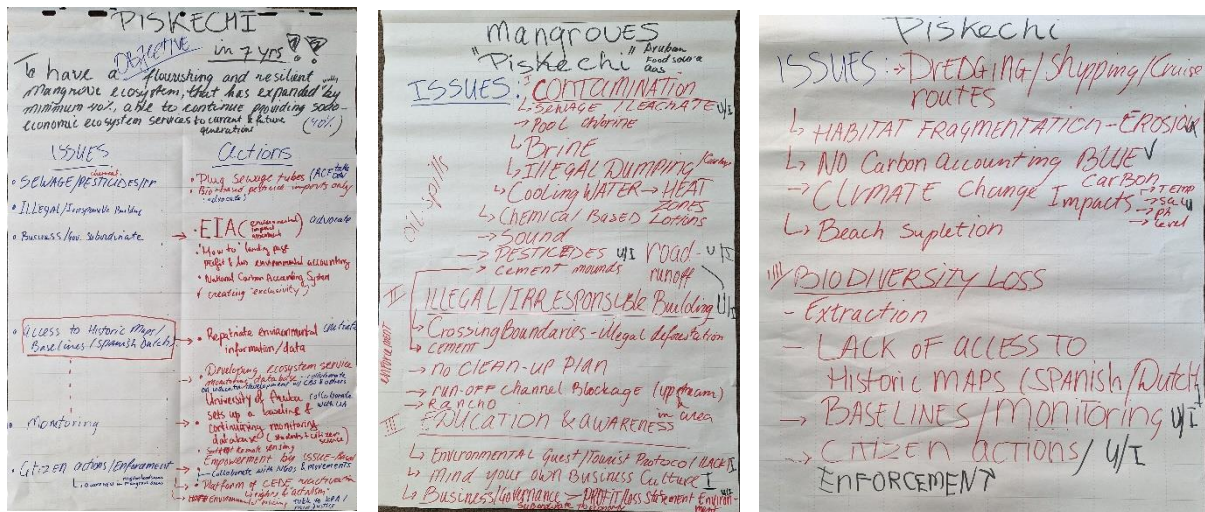 PISKECHI
OBJECTIVE in 7 yrs??
To have a flourishing and resilient
mangrove ecosystem, that has expanded by
minimum 40%, able to continue providing socio-
economic ecosystem services to current & future
generations (40%)
ISSUES
chemical
• SEWAGE/PESTICIDES/
• ILLegal/Irresponsible Building
• Business/Gov. Subordinate
• Access to Historic Maps/
Baselines (Spanish Dutch)
• Monitoring
• Citizen actions/Enforcement
Actions
• Plug sewage tubes
• Bio-based pesticide imports only
"advocate"
→ • EIA (environmental impact assessment) advocate
• "How to" landing page
profit & loss environmental accounting
• National Carbon Accounting System
✓ creating "exclusivity"
→ • Repatriate environmental
information/data
→ • Developing ecosystem service
monitoring database - collaborate
CBS & others
University of Aruba collaborate
sets up a baseline & with UA
continuing monitoring
database (students & citizen
science)
• remote sensing
Empowerment by issue-based
Collaborate with NGOs & movements
→ • Platform of CEDE reactivation
Environmental
Mangroves
"Piskechi" Aruban
Food source
ISSUES: I CONTAMINATION
↳ SEWAGE / LEACHATE U/I
→ Pool chlorine
↳ Brine
↳ ILLEGAL DUMPING/
↳ Cooling WATER → HEAT
ZONES
↳ Chemical Based Lotions
oil-spills
→ Sound
→ PESTICIDES U/I road - U/I
runoff
→ cement mounds
II ILLEGAL/IRRESPONSIBLE Building U/I
↳ Crossing Boundaries - illegal deforestation
↳ cement
enforcement
→ no CLEAN-UP PLAN
→ run-off channel Blockage (upstream)
→ Rancho in area
III EDUCATION & AWARENESS
↳ Environmental Guest/Tourist Protocol/LACK I
↳ Mind your own Business Culture I
↳ Business/Governance → PROFIT/Loss Statement Environ-
ment
Subordinate to economy
Piskechi
ISSUES: → DREDGING/Shipping/Cruise
routes
↳ HABITAT FRAGMENTATION - EROSION
↳ NO Carbon Accounting BLUE ✓
Carbon
→ CLIMATE Change Impacts → Temp
→ Sal
→ ph
→ level
↳ Beach Supletion
IIII BIODIVERSITY LOSS
- Extraction
- LACK OF ACCESS TO
HISTORIC MAPS (SPANISH/Dutch)
→ BASELINES/Monitoring U/I
→ CITIZEN ACTIONS/ U/I
ENFORCEMENT